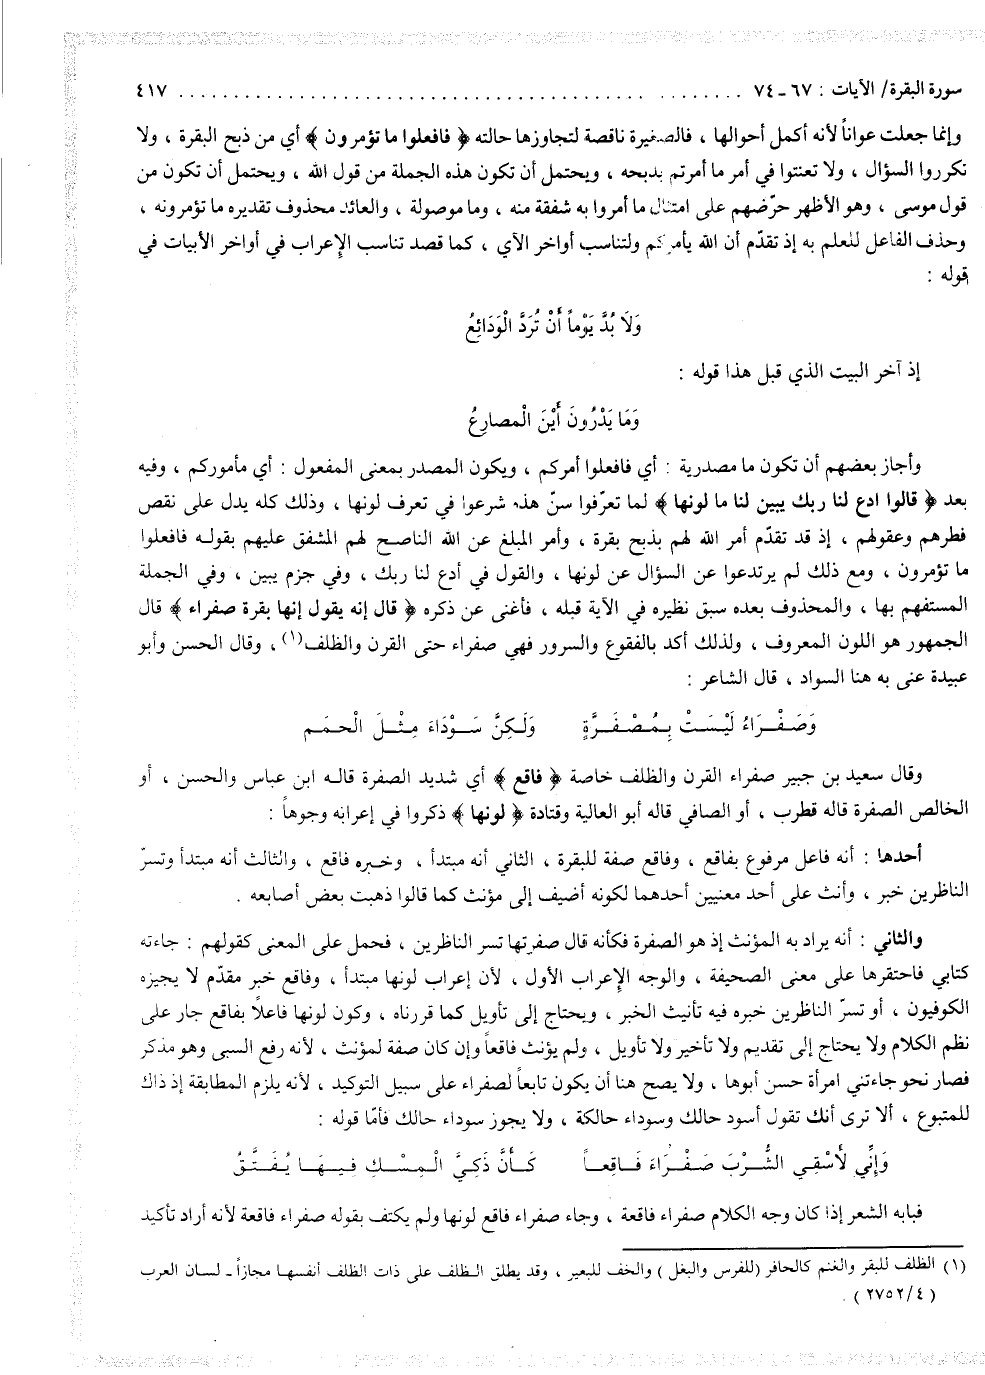 سورة البقرة/ الآيات : ٦٧ - ٧٤ ........................................ ٤١٧
وإنما جعلت عواناً لأنه أكمل أحوالها ، فالصغيرة ناقصة لتجاوزها حالته ﴿ فافعلوا ما تؤمرون ﴾ أي من ذبح البقرة ، ولا
تكرروا السؤال ، ولا تعنتوا في أمر ما أمرتم بذبحه ، ويحتمل أن تكون هذه الجملة من قول الله ، ويحتمل أن تكون من
قول موسى ، وهو الأظهر حرّضهم على امتثال ما أمروا به شفقة منه ، وما موصولة ، والعائد محذوف تقديره ما تؤمرونه ،
وحذف الفاعل للعلم به إذ تقدّم أن الله يأمركم ولتناسب أواخر الآي ، كما قصد تناسب الإعراب في أواخر الأبيات في
قوله :
وَلَا بُدَّ يَوْماً أَنْ تُرَدَّ الْوَدَائِعُ
إذ آخر البيت الذي قبل هذا قوله :
وَمَا يَدْرُونَ أَيْنَ الْمصارِعُ
وأجاز بعضهم أن تكون ما مصدرية : أي فافعلوا أمركم ، ويكون المصدر بمعنى المفعول : أي مأموركم ، وفيه
بعد ﴿ قالوا ادع لنا ربك يبين لنا ما لونها ﴾ لما تعرّفوا سنّ هذه شرعوا في تعرف لونها ، وذلك كله يدل على نقص
فطرهم وعقولهم ، إذ قد تقدّم أمر الله لهم بذبح بقرة ، وأمر المبلغ عن الله الناصح لهم المشفق عليهم بقوله فافعلوا
ما تؤمرون ، ومع ذلك لم يرتدعوا عن السؤال عن لونها ، والقول في أدع لنا ربك ، وفي جزم يبين ، وفي الجملة
المستفهم بها ، والمحذوف بعده سبق نظيره في الآية قبله ، فأغنى عن ذكره ﴿ قال إنه يقول إنها بقرة صفراء ﴾ قال
الجمهور هو اللون المعروف ، ولذلك أكد بالفقوع والسرور فهي صفراء حتى القرن والظلف(١) ، وقال الحسن وأبو
عبيدة عنى به هنا السواد ، قال الشاعر :
وَصَفْرَاءُ لَيْسَتْ بِمُصْفَرَّةٍ وَلَكِنَّ سَوْدَاءَ مِثْلَ الْحمَم
وقال سعيد بن جبير صفراء القرن والظلف خاصة ﴿ فاقع ﴾ أي شديد الصفرة قاله ابن عباس والحسن ، أو
الخالص الصفرة قاله قطرب ، أو الصافي قاله أبو العالية وقتادة ﴿ لونها ﴾ ذكروا في إعرابه وجوهاً :
أحدها : أنه فاعل مرفوع بفاقع ، وفاقع صفة للبقرة ، الثاني أنه مبتدأ ، وخبره فاقع ، والثالث أنه مبتدأ وتسرّ
الناظرين خبر ، وأنث على أحد معنيين أحدهما لكونه أضيف إلى مؤنث كما قالوا ذهبت بعض أصابعه .
والثاني : أنه يراد به المؤنث إذ هو الصفرة فكأنه قال صفرتها تسر الناظرين ، فحمل على المعنى كقولهم : جاءته
كتابي فاحتقرها على معنى الصحيفة ، والوجه الإعراب الأول ، لأن إعراب لونها مبتدأ ، وفاقع خبر مقدّم لا يجيزه
الكوفيون ، أو تسرّ الناظرين خبره فيه تأنيث الخبر ، ويحتاج إلى تأويل كما قررناه ، وكون لونها فاعلاً بفاقع جار على
نظم الكلام ولا يحتاج إلى تقديم ولا تأخير ولا تأويل ، ولم يؤنث فاقعاً وإن كان صفة لمؤنث ، لأنه رفع السبى وهو مذكر
فصار نحو جاءتني امرأة حسن أبوها ، ولا يصح هنا أن يكون تابعاً لصفراء على سبيل التوكيد ، لأنه يلزم المطابقة إذ ذاك
للمتبوع ، ألا ترى أنك تقول أسود حالك وسوداء حالكة ، ولا يجوز سوداء حالك فأمّا قوله :
وَإِنِّي لَأَسْقِي الشُّرْبَ صَفْرَاءَ فَاقِعاً كَأَنَّ ذَكِيَّ الْمِسْكِ فِيهَا يُفَتَّقُ
فبابه الشعر إذا كان وجه الكلام صفراء فاقعة ، وجاء صفراء فاقع لونها ولم يكتف بقوله صفراء فاقعة لأنه أراد تأكيد
(١) الظلف للبقر والغنم كالحافر (للفرس والبغل) والخف للبعير ، وقد يطلق الظلف على ذات الظلف أنفسها مجازاً - لسان العرب
(٤/٢٧٥٢) .